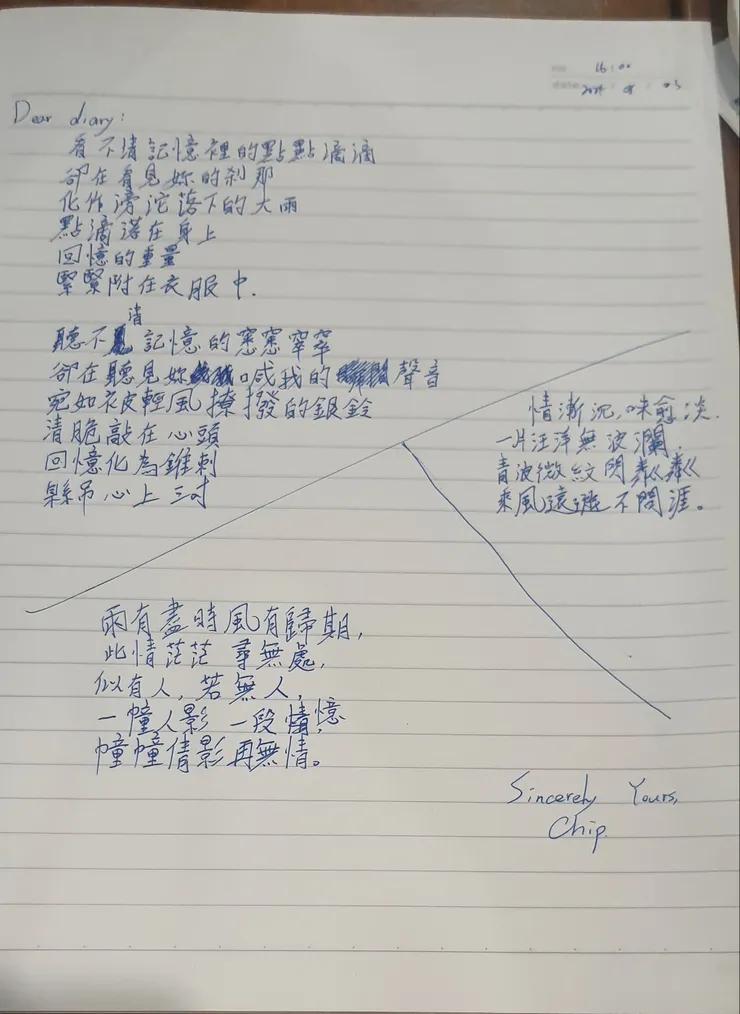 16:00
08 03
Dear diary:
看不清記憶裡的點點滴滴
卻在看見妳的刹那
化作滂沱落下的大雨
點滴落在身上
回憶的重量
緊緊附在衣服中.
聽不清記憶的窸窸窣窣
卻在聽見妳喊我的聲音
宛如被輕風撩撥的銀鈴
清脆敲在心頭
回憶化為錐刺
懸吊心上三寸
情漸沉,味愈淡.
一片汪洋無波瀾.
青波微紋閃粼粼
乘風遠遊不問涯。
雨有盡時風有歸期,
此情茫茫尋無處,
似有人,若無人,
一幢人影一段情憶
幢幢倩影再無情。
Sincerely Yours,
Chip.